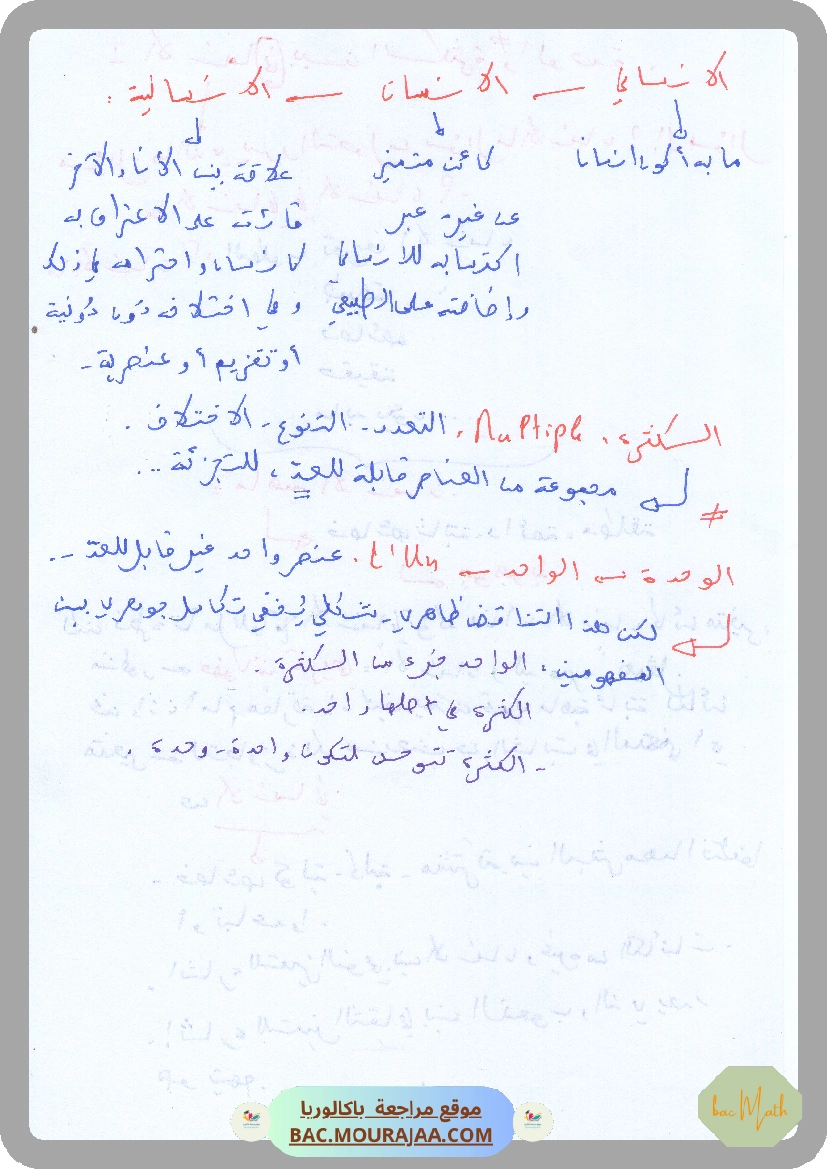 الإنساني — الإنسان — الإنسانية :
ما به أكون إنسانا
كائن متميز
عن غيره عبر
اكتسابه للإنساني
وإضافته على الطبيعي
علاقة بين الأنا والآخر
قائمة على الاعتراف به
كإنسان واحترامه في ذلك
وفي اختلافه دون دُونية
أو تقزيم أو عنصرية -
الكثرة، Multiple، التعدد - التنوع - الاختلاف .
مجموعة من العناصر قابلة للعدّ، للتجزئة ..
≠
الوحدة — الواحد — L'Un، عنصر واحد غير قابل للعدّ -.
لكن هذا التناقض ظاهري - شكلي يُخفي تكامل جوهري بين
المفهومين، الواحد جزء من الكثرة .
الكثرة في أصلها واحد.
- الكثرة تتوحد لتكون واحدة - وحدة .
موقع مراجعة باكالوريا
BAC.MOURAJAA.COM
bac Math